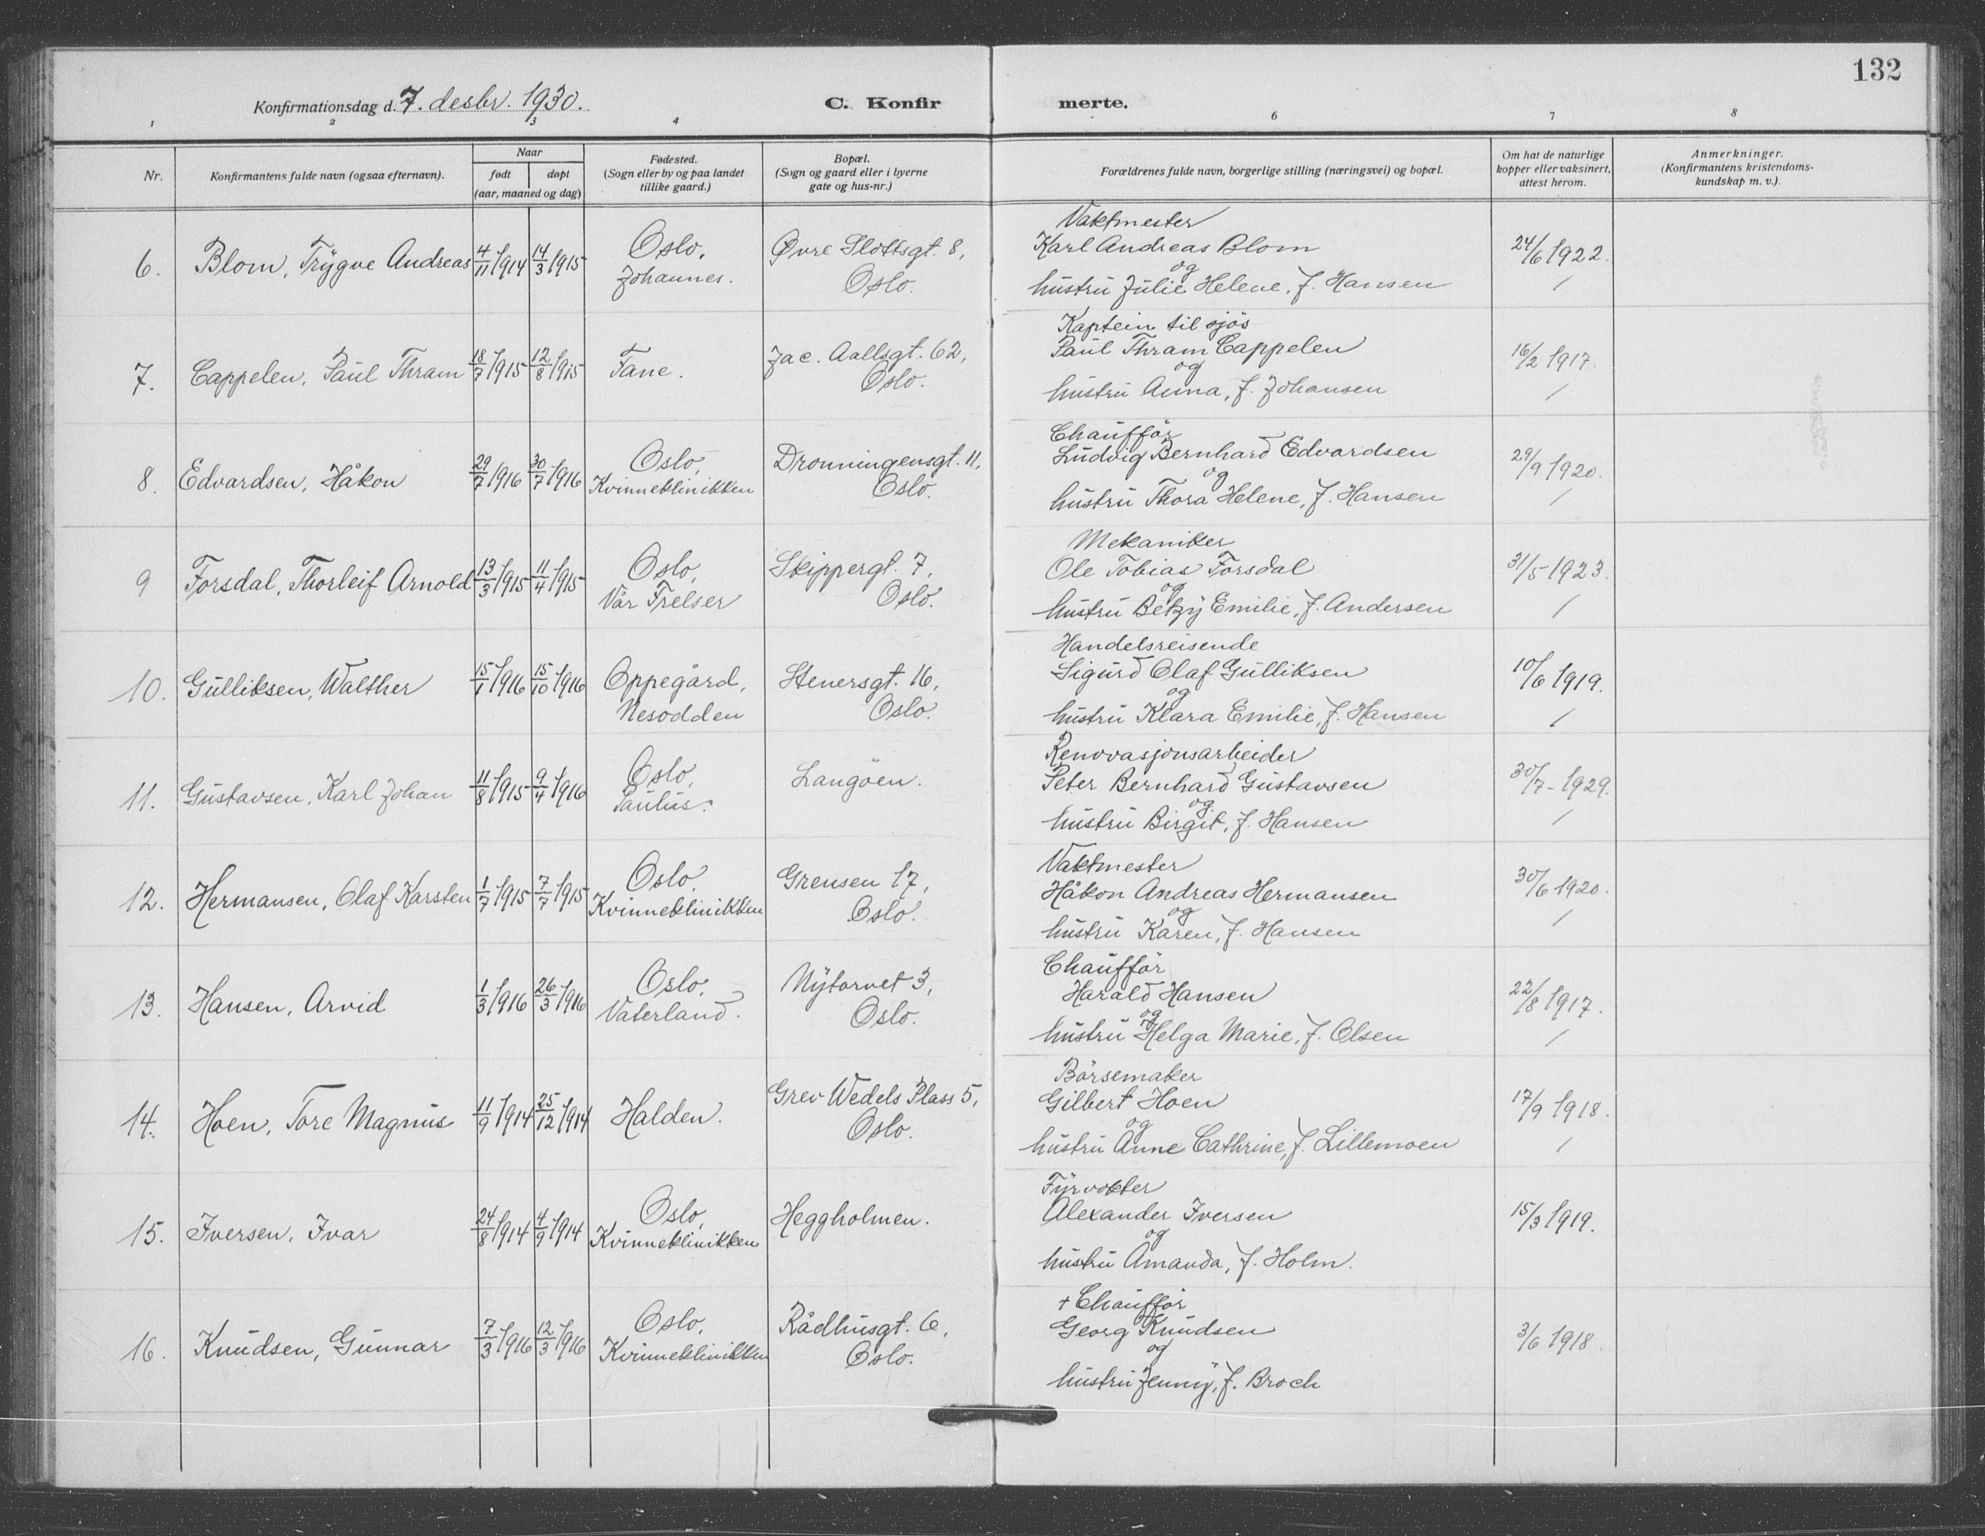 132
Konfirmationsdag d. 7. desbr. 1930. C. Konfir merte.
1 2 3 4 6 7 8
Nr. Konfirmantens fulde navn (ogsaa efternavn). Naar født døpt (aar, maaned og dag) Fødested. (Sogn eller by og paa landet tillike gaard.) Bopæl. (Sogn og gaard eller i byerne gate og hus-nr.) Forældrenes fulde navn, borgerlige stilling (næringsvei) og bopæl. Om hat de naturlige kopper eller vaksinert, attest herom. Anmerkninger. (Konfirmantens kristendoms-kundskap m. v.).
Vaktmester
6. Blom, Trygve Andreas 4/11 1914 14/3 1915 Oslo, Øvre Slottsgt. 8, Karl Andreas Blom 24/6 1922.
Johannes. Oslo. og
hustru Julie Helene, f. Hansen /
Kaptein til sjøs
7. Cappelen, Paul Thram 18/7 1915 12/8 1915 Tane. Jac. Aallsgt. 62, Paul Thram Cappelen 16/2 1917.
Oslo. og
hustru Anna, f. Johansen /
Chauffør
8. Edvardsen, Håkon 29/7 1916 30/7 1916 Oslo, Dronningensgt. 11, Ludvig Bernhard Edvardsen 29/9 1920.
Kvinneklinikken Oslo. og
hustru Thora Helene, f. Hansen /
Mekaniker
9 Forsdal, Thorleif Arnold 13/3 1915 11/4 1915 Oslo, Skippergt. 7, Ole Tobias Forsdal 31/5 1923.
Vår Frelser Oslo. og
hustru Betzy Emilie, f. Andersen /
Handelsreisende
10. Gulliksen, Walther 15/1 1916 15/10 1916 Oppegård, Stenersgt. 16, Sigurd Olaf Gulliksen 10/6 1919.
Nesodden Oslo. og
hustru Klara Emilie, f. Hansen /
Renovasjonsarbeider
11. Gustavsen, Karl Johan 11/8 1915 9/4 1916 Oslo, Langøen. Peter Bernhard Gustavsen 30/7 - 1929.
Paulus. og
hustru Birgit, f. Hansen /
Vaktmester
12. Hermansen, Olaf Karsten 1/7 1915 7/7 1915 Oslo, Grensen 17, Håkon Andreas Hermansen 30/6 1920.
Kvinneklinikken Oslo. og
hustru Karen, f. Hansen /
Chauffør
13. Hansen, Arvid 1/3 1916 26/3 1916 Oslo, Nytorvet 3, Harald Hansen 22/8 1917.
Vaterland. Oslo. og
hustru Helga Marie, f. Olsen /
Börsemaker
14. Hoen, Tore Magnus 11/9 1914 25/12 1914 Halden. Grev Wedels Plass 5, Gilbert Hoen 17/9 1918.
Oslo. og
hustru Anne Cathrine, f. Lillemoen /
Fyrvokter
15. Iversen, Ivar 24/8 1914 4/9 1914 Oslo, Heggholmen. Alexander Iversen 15/3 1919.
Kvinneklinikken og
hustru Amanda, f. Holm.
+ Chauffør
16. Knudsen, Gunnar 7/3 1916 12/3 1916 Oslo, Rådhusgt. 6, Georg Knudsen 3/6 1918.
Kvinneklinikken Oslo. og
hustru Jenny, f. Broch